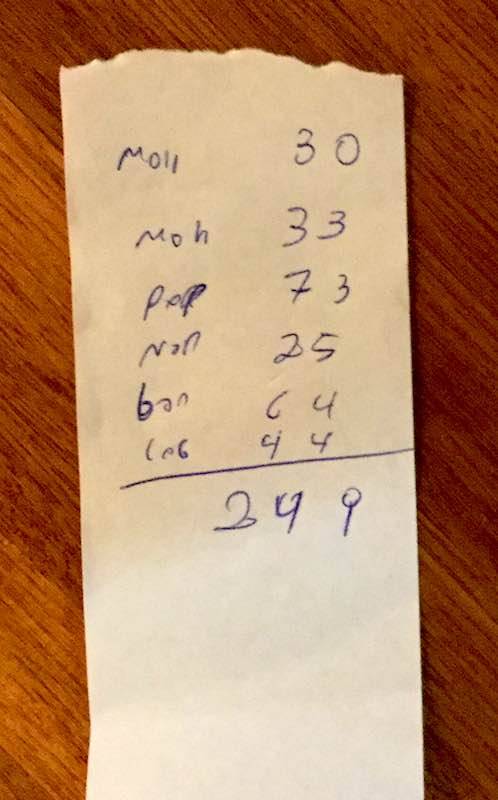 Moll 30
Moh 33
Pep 73
Nan 25
ban 64
Lab 44
249